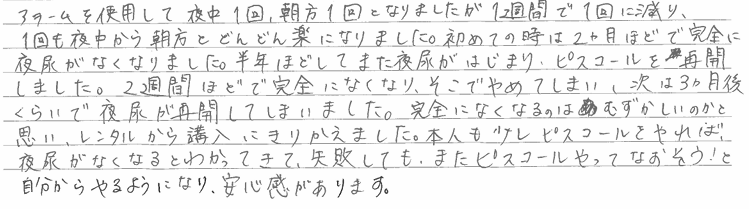 アラームを使用して夜中1回,朝方1回となりましたが1,2週間で1回に減り、
1回も夜中から朝方とどんどん楽になりました。初めての時は2ヶ月ほどで完全に
夜尿がなくなりました。半年ほどしてまた夜尿がはじまり、ピスコールを再開
しました。2,3週間ほどで完全になくなり、そこでやめてしまい、次は3ヶ月後
くらいで夜尿が再開してしまいました。完全になくなるのはむずかしいのかと
思い、レンタルから購入にきりかえました。本人も少しピスコールをやれば、
夜尿がなくなるとわかってきて、失敗しても、またピスコールやってなおそう!と
自分からやるようになり、安心感があります。